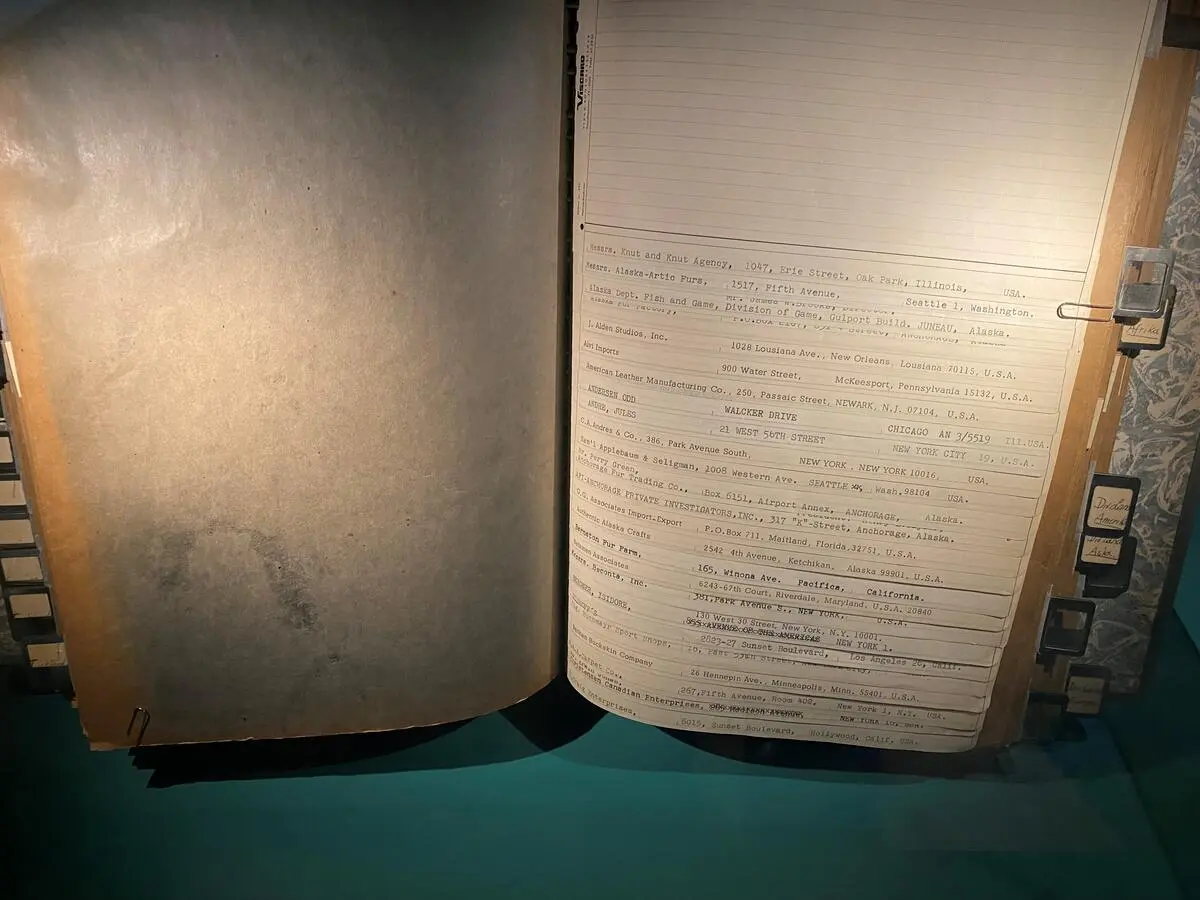 Viscard
Messrs. Knut and Knut Agency, 1047, Erie Street, Oak Park, Illinois, USA.
Messrs. Alaska-Artic Furs, 1517, Fifth Avenue, Seattle 1, Washington.
Alaska Dept. Fish and Game, Division of Game, Gulport Build. JUNEAU, Alaska.
J. Alden Studios, Inc. 1028 Lousiana Ave., New Orleans, Lousiana 70115, U.S.A.
Alvi Imports 900 Water Street, McKeesport, Pennsylvania 15132, U.S.A.
American Leather Manufacturing Co., 250, Passaic Street, NEWARK, N.J. 07104, U.S.A.
ANDERSEN ODD WALCKER DRIVE CHICAGO AN 3/5519 Ill.USA.
ANDRE, JULES 21 WEST 56TH STREET NEW YORK CITY 19, U.S.A.
C.A. Andres & Co., 386, Park Avenue South, NEW YORK, NEW YORK 10016, USA.
Sam'l Applebaum & Seligman, 1008 Western Ave. SEATTLE Wash. 98104 USA.
Mr. Perry Green,
Anchorage Fur Trading Co., Box 6151, Airport Annex, ANCHORAGE, Alaska.
API-ANCHORAGE PRIVATE INVESTIGATORS, INC., 317 "K"-Street, Anchorage, Alaska.
Associates Import-Export P.O.Box 711. Maitland, Florida.32751, U.S.A.
Authentic Alaska Crafts 2542 4th Avenue, Ketchikan. Alaska 99901, U.S.A.
Fur Farm, 165, Winona Ave. Pacifica, California.
Associates 6243-67th Court, Riverdale, Maryland. U.S.A. 20840
Messrs. Beconta, Inc. 381, Park Avenue S., NEW YORK, U.S.A.
ISIDORE, 130 West 30 Street, New York, N.Y. 10001.
855 AVENUE OF THE AMERICAS NEW YORK 1.
Sport Shops, 2823-27 Sunset Boulevard, Los Angeles 26, Calif.
Buckskin Company 26 Hennepin Ave., Minneapolis, Minn. 55401, U.S.A.
Carpet Co., 267, Fifth Avenue, Room 400, New York 1, N.Y. USA.
Canadian Enterprises, Madison Avenue,
Enterprises, 6015, Sunset Boulevard, Hollywood, Calif. USA.
Afrika